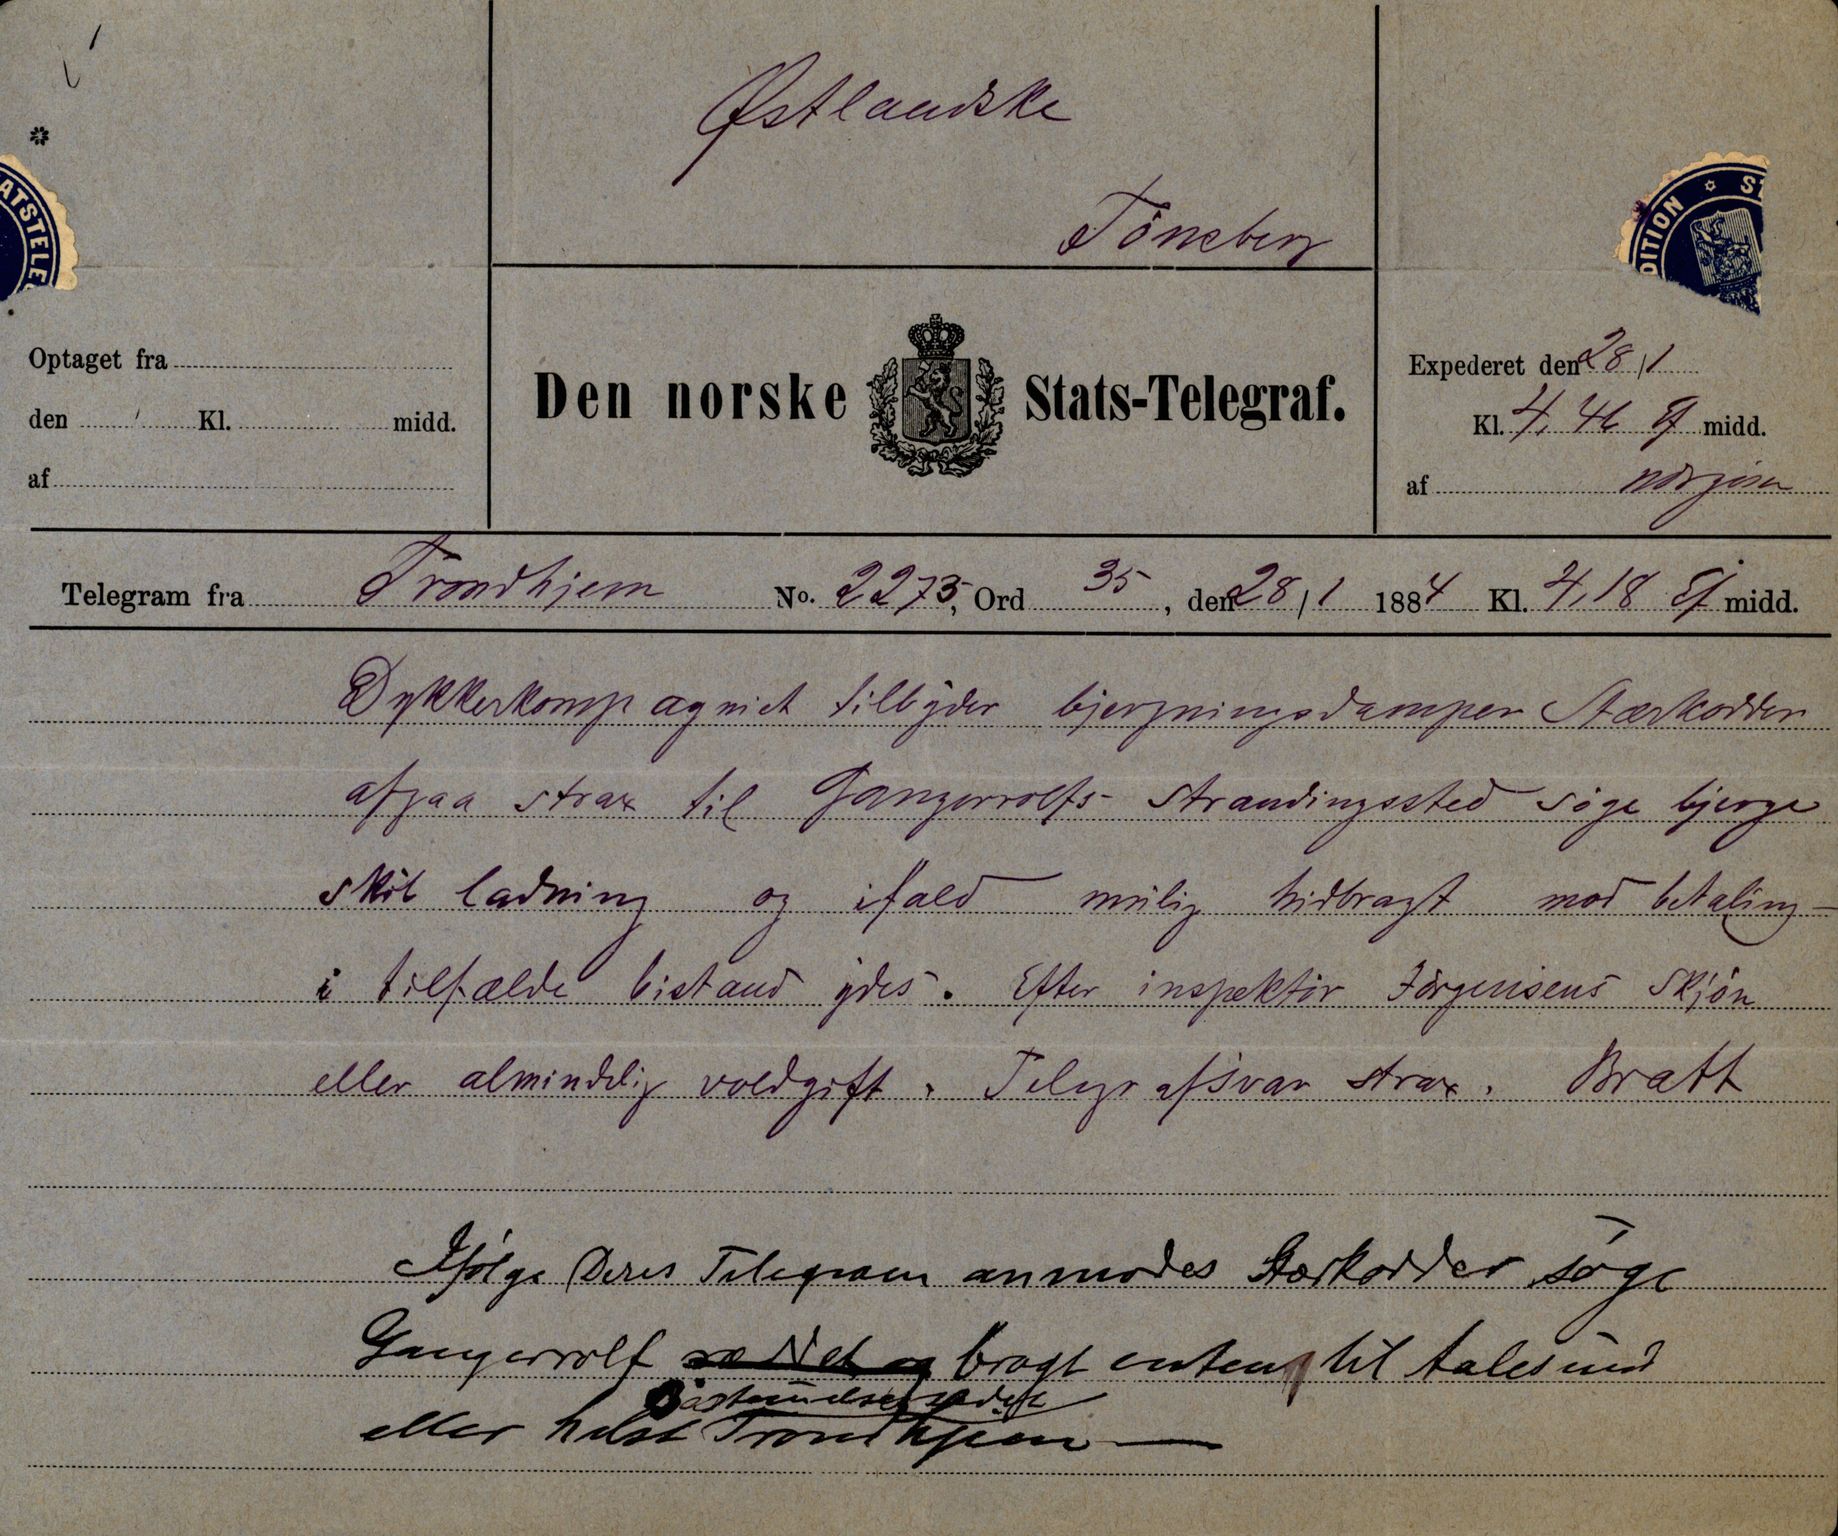 Østlandske
Tönsberg
ATSTELE
DITION ✡ S
Optaget fra
den Kl. midd.
af
Den norske Stats-Telegraf.
Expederet den 28/1
Kl. 4,46 Ef midd.
af
Telegram fra Trondhjem No. 2273, Ord 35, den 28/1 1884 Kl. 4,18 Ef midd.
Dykkerkompagniet tilbyder bjergningsdamper Stærkodder
afgaa strax til Gangerrolfs strandingssted söge bjerge
skib ladning og ifald mulig hidbragt mod betaling
i tilfælde bistand ydes. Efter inspektör Jörgensens Skjön
eller almindelig voldgift. Telegrafsvar strax. Bratt
Ifölge Deres Telegram anmodes Stærkodder söge
Gangerrolf reddet og bragt enten til Aalesund
eller helst Trondhjem